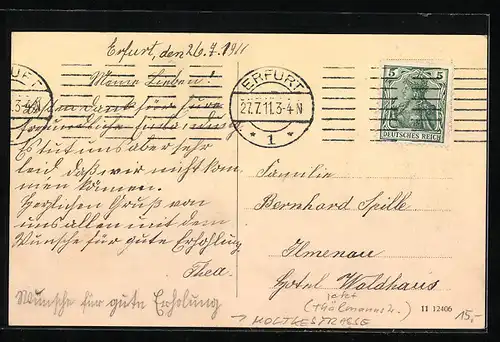 Erfurt, den 26.7.1911
Meine Lieben!
ERFURT
27.7.11.3-4N
* 1 *
5 5
DEUTSCHES REICH
Es tut uns aber sehr
leid, daß wir nicht kom-
men können.
Herzlichen Gruß von
uns allen mit dem
Wunsche für gute Erholung
Thea.
Wünsche für gute Erholung
Familie
Bernhard Spille
Ilmenau
Hotel Waldhaus
jetzt
(Thälmannstr.)
→ MOLTKESTRASSE
11 12406
15,-